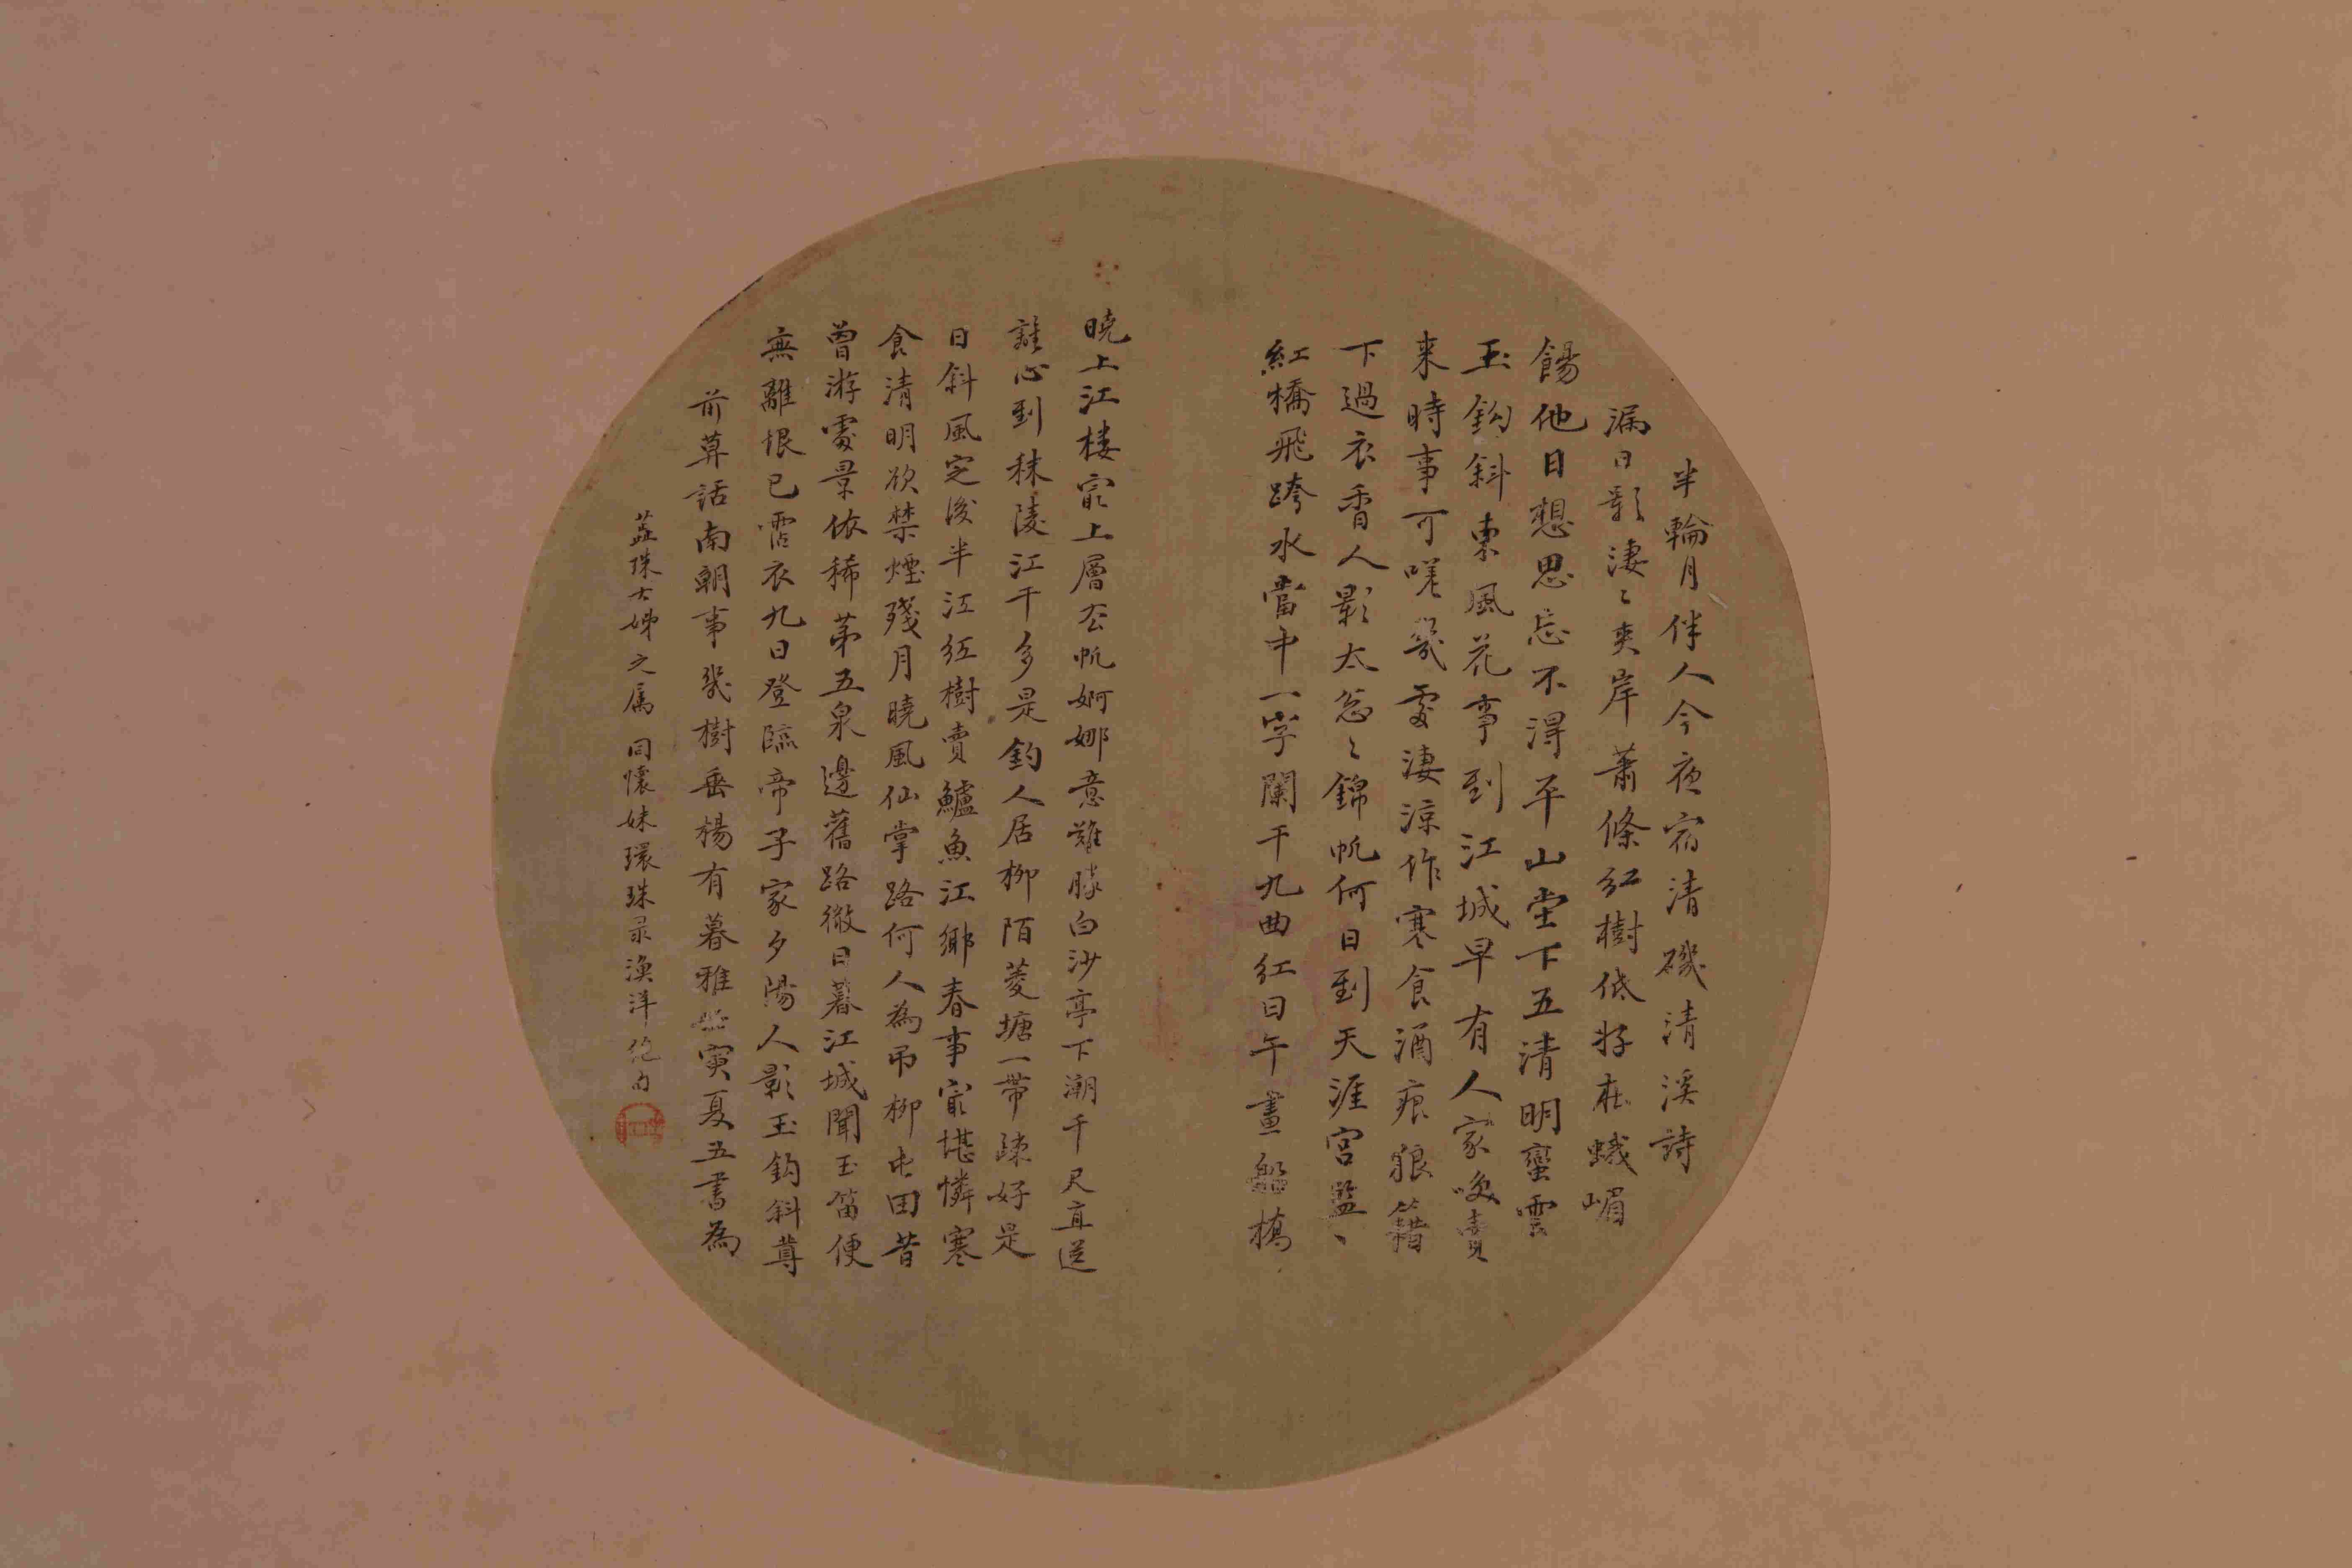 半輪月伴人今夜宿清磯清溪詩
漏日影淒〻夾岸蕭條紅樹低好在蛾嵋
餳他日想思忘不得平山堂下五清明蛮雲
玉鈎斜東風花事到江城早有人家喚賣
来時事可嗟幾處淒涼作寒食酒痕狼籍
下過衣香人影太怱〻錦帆何日到天涯宮監〻
紅橋飛跨水當中一字闌干九曲紅日午畫船橋
曉上江楼㝡上層㳒帆婀娜意難勝白沙亭下潮千尺直送
離心到秣陵江干多是釣人居柳陌菱塘一帶疎好是
日斜風定後半江紅樹賣鱸魚江鄉春事㝡堪憐寒
食清明欲禁煙殘月曉風仙掌路何人為吊柳屯田昔
曾游處景依稀第五泉邊舊路微日暮江城聞玉笛便
無離恨已霑衣九日登臨帝子家夕陽人影玉鈎斜尊
前莫話南朝事幾樹垂楊有暮雅 寅夏五書為
蕋珠大姊之属 同懷妹環珠录漁洋絶句